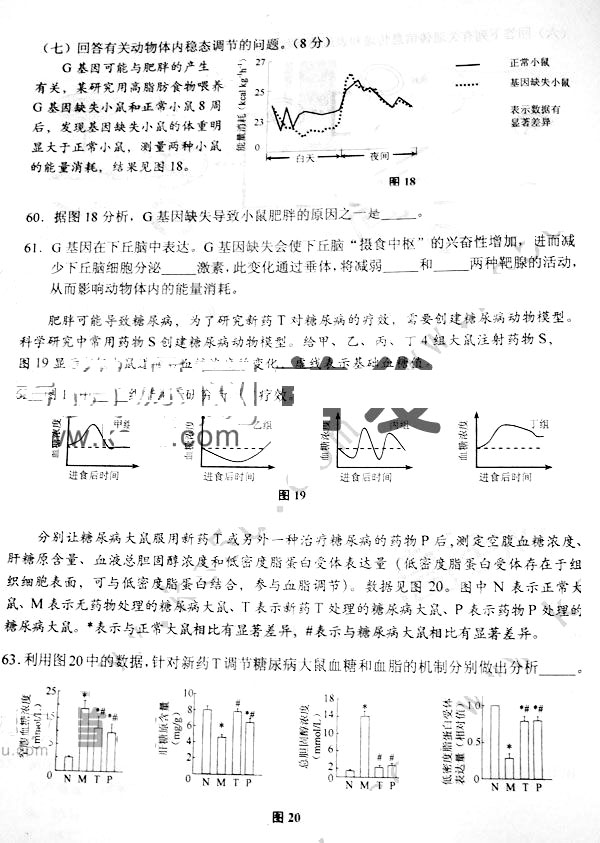 （七）回答有关动物体内稳态调节的问题。（8分）
G基因可能与肥胖的产生
有关，某研究用高脂肪食物喂养
G基因缺失小鼠和正常小鼠8周
后，发现基因缺失小鼠的体重明
显大于正常小鼠，测量两种小鼠
的能量消耗，结果见图18。
能量消耗（kcal kg⁻¹h⁻¹）
27
25
23
0
白天
夜间
正常小鼠
基因缺失小鼠
表示数据有
显著差异
图18
60. 据图18分析，G基因缺失导致小鼠肥胖的原因之一是_____。
61. G基因在下丘脑中表达。G基因缺失会使下丘脑“摄食中枢”的兴奋性增加，进而减
少下丘脑细胞分泌_____激素，此变化通过垂体，将减弱_____和_____两种靶腺的活动，
从而影响动物体内的能量消耗。
肥胖可能导致糖尿病，为了研究新药T对糖尿病的疗效，需要创建糖尿病动物模型。
科学研究中常用药物S创建糖尿病动物模型。给甲、乙、丙、丁4组大鼠注射药物S，
图19显 变化，虚线表示基础血糖值。
疗效。
血糖浓度
甲组
进食后时间
组
进食后时间
血糖浓度
丙组
进食后时间
血糖浓度
丁组
进食后时间
图19
分别让糖尿病大鼠服用新药T或另外一种治疗糖尿病的药物P后，测定空腹血糖浓度、
肝糖原含量、血液总胆固醇浓度和低密度脂蛋白受体表达量（低密度脂蛋白受体存在于组
织细胞表面，可与低密度脂蛋白结合，参与血脂调节）。数据见图20。图中N表示正常大
鼠、M表示无药物处理的糖尿病大鼠、T表示新药T处理的糖尿病大鼠、P表示药物P处理的
糖尿病大鼠。*表示与正常大鼠相比有显著差异，#表示与糖尿病大鼠相比有显著差异。
63. 利用图20中的数据，针对新药T调节糖尿病大鼠血糖和血脂的机制分别做出分析_____。
空腹血糖浓度
（mmol/L）
25
15
5
* *# *#
N M T P
肝糖原含量
（mg/g）
10
8
6
4
2
* # *#
N M T P
总胆固醇浓度
（mmol/L）
18
14
10
6
2
* # #
N M T P
低密度脂蛋白受体
表达量（相对值）
1.0
0.5
0
* *# *#
N M T P
图20